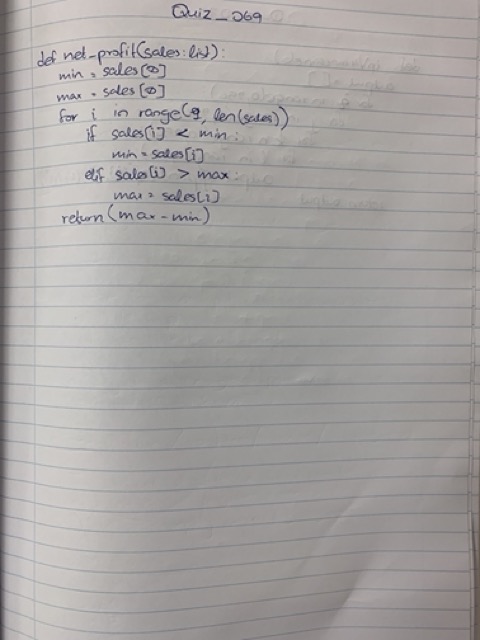 Quiz_069
def net_profit(sales:list):
min = sales[0]
max = sales[0]
for i in range(, len(sales))
if sales[i] < min:
min = sales[i]
elif sales[i] > max:
max = sales[i]
return(max-min)